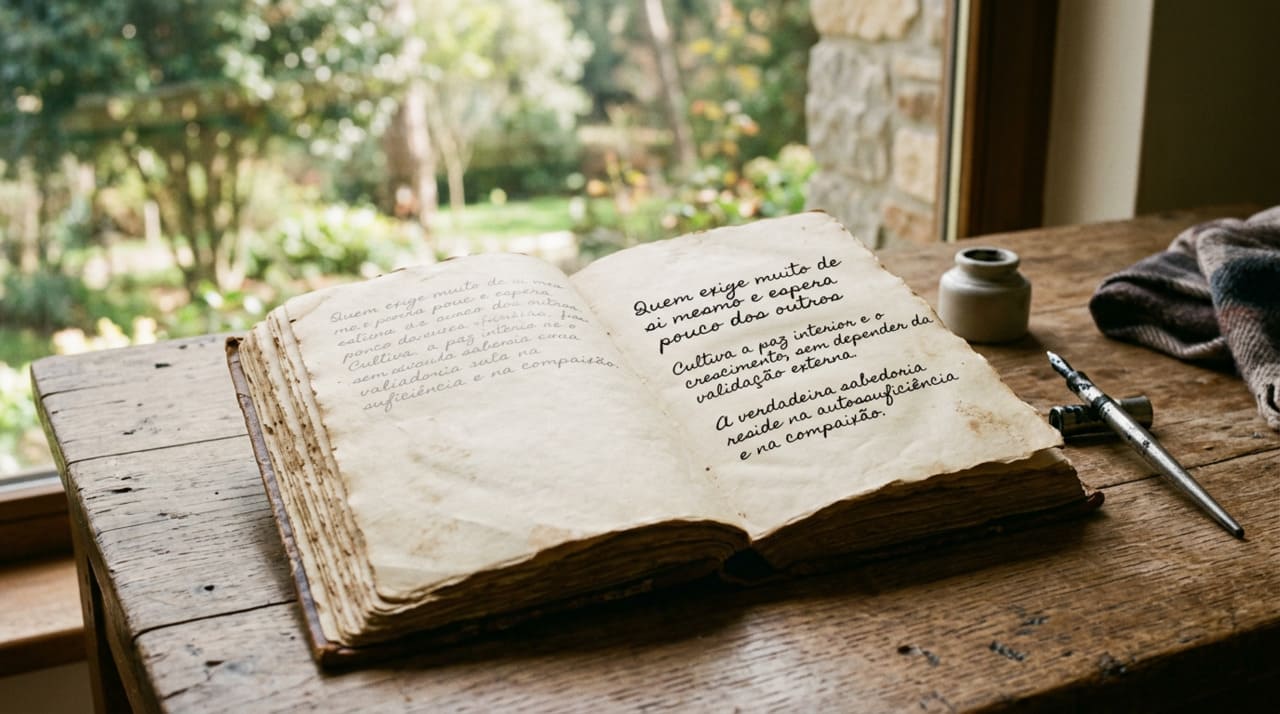 Quem exige muito de si mes
mo e poerra pouc e espera
estima de auaco dos outros
ponco da
Cultiva, a paz interia ne o
sem
sula na
suficiência e na compaixão.
Quem exige muito de
si mesmo e espera
pouco dos outros
Cultiva a paz interior e o
crescimento, sem depender da
validação externa.
A verdadeira sabedoria
reside na autossuficiência
e na compaixão.